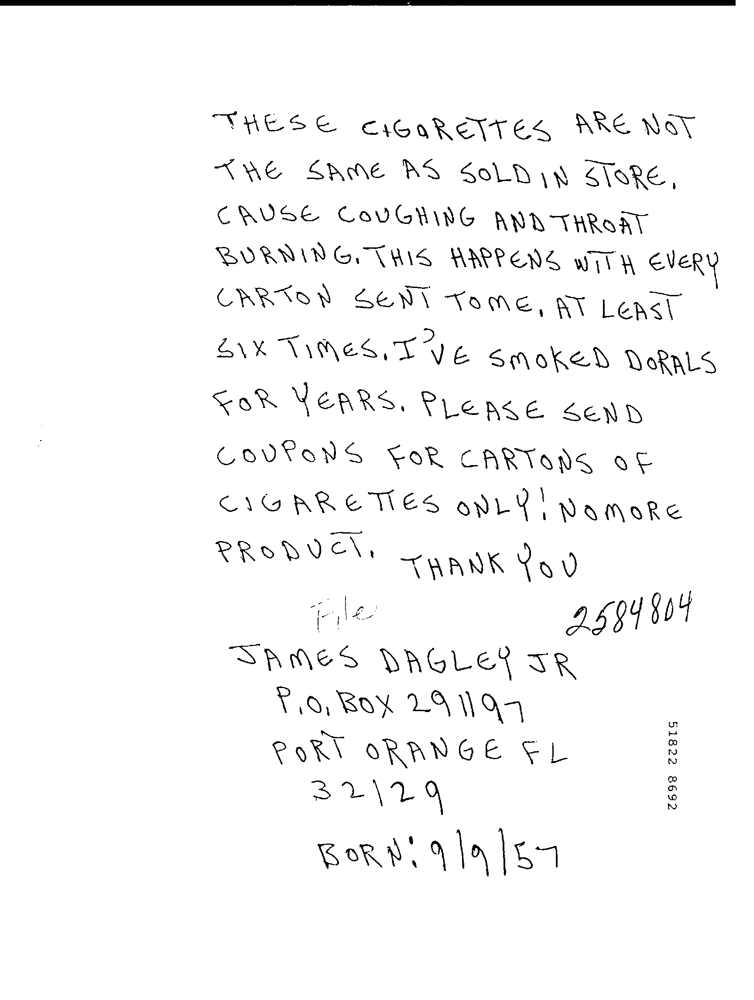 THESE CIGARETTES ARE NOT
THE SAME AS SOLD IN STORE,
CAUSE COUGHING AND THROAT
BURNING. THIS HAPPENS WITH EVERY
CARTON SENT TO ME, AT LEAST
SIX TIMES. I'VE SMOKED DORALS
FOR YEARS. PLEASE SEND
COUPONS FOR CARTONS OF
CIGARETTES ONLY! NO MORE
PRODUCT. THANK YOU
File
2584804
JAMES DAGLEY JR
P.O. BOX 291197
PORT ORANGE FL
32129
BORN: 9/9/57
51822 8692